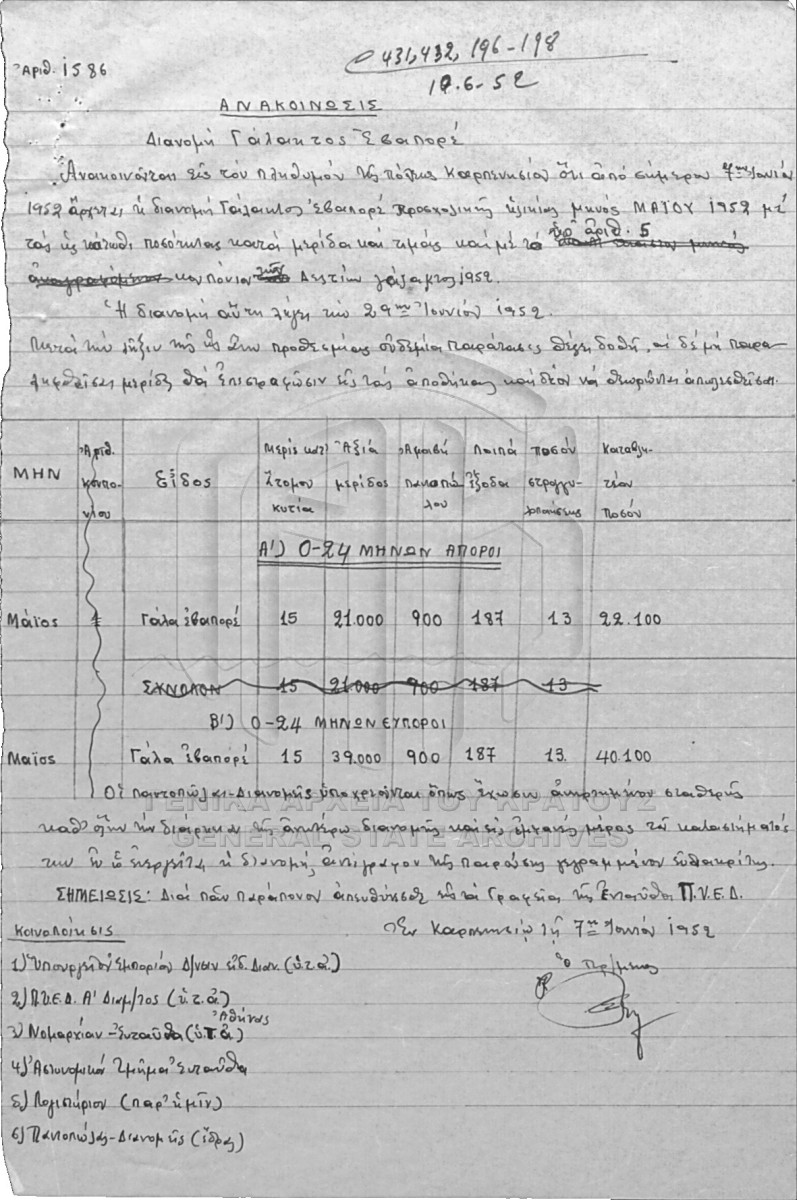 431,432, 196-198
Ἀριθ. 1586
10.6-52
ΑΝΑΚΟΙΝΩΣΙΣ
Διανομή Γάλακτος Ἐβαπορέ
Ἀνακοινοῦται εἰς τόν πληθυσμόν τῆς πόλεως Καρπενησίου ὅτι ἀπό σήμερον 7ην Ἰουνίου
1952 ἄρχεται ἡ διανομή Γάλακτος Ἐβαπορέ προσχολικῆς ἡλικίας μηνός ΜΑΪΟΥ 1952 μέ
τάς ὡς κάτωθι ποσότητας κατά μερίδα καί τιμάς καί μέ τό ὑπ' ἀριθ. 5
κουπόνιον τῶν Δελτίων γάλακτος 1952.
Ἡ διανομή αὕτη λήγει τήν 29ην Ἰουνίου 1952.
Μετά τήν λῆξιν τῆς ὡς ἄνω προθεσμίας οὐδεμία παράτασις θέλει δοθῆ, αἱ δέ μή παρα-
ληφθεῖσαι μερίδες θά ἐπιστραφῶσιν εἰς τάς ἀποθήκας καί δέον νά θεωρῶνται ἀπολεσθεῖσαι.
ΜΗΝ Ἀριθ. κουπονίου Εἶδος Μερίς κατ' ἄτομον κυτία Ἀξία μερίδος Ἀμοιβή παντοπώλου Λοιπά ἔξοδα Ποσόν στρογγυλοποιήσεως Καταβλητέον ποσόν
Α') 0-24 ΜΗΝΩΝ ΑΠΟΡΟΙ
Μάϊος 1 Γάλα ἐβαπορέ 15 21.000 900 187 13 22.100
ΣΥΝΟΛΟΝ 15 21.000 900 187 13
Β') 0-24 ΜΗΝΩΝ ΕΥΠΟΡΟΙ
Μαϊος Γάλα ἐβαπορέ 15 39.000 900 187 13. 40.100
Οἱ παντοπῶλαι-Διανομεῖς ὑποχρεοῦνται ὅπως ἔχωσιν ἀνηρτημένον σταθερῶς
καθ' ὅλην τήν διάρκειαν τῆς ἀνωτέρω διανομῆς καί εἰς ἐμφανές μέρος τοῦ καταστήματός
των ἐν ᾧ ἐνεργεῖται ἡ διανομή, ἀντίγραφον τῆς παρούσης γεγραμμένον εὐθακρίτως.
ΓΕΝΙΚΑ ΑΡΧΕΙΑ ΤΟΥ ΚΡΑΤΟΥΣ
GENERAL STATE ARCHIVES
ΣΗΜΕΙΩΣΙΣ: Διά πᾶν παράπονον ἀπευθύνεσθε εἰς τά Γραφεῖα τῆς ἐνταῦθα Π.Υ.Ε.Δ.
Ἐν Καρπενησίῳ τῇ 7ῃ Ἰουνίου 1952
Κοινοποίησις
Ὁ Πρ/μενος
1) Ὑπουργεῖον Ἐμπορίου Δ/νσιν εἰδ. Διαν. (ὑ.τ.ἀ.)
2) Π.Υ.Ε.Δ. Α' Διαμ/τος (ὑ.τ.ἀ) Ἀθήνας
3) Νομαρχίαν - Ἐνταῦθα (ὑ.τ.ἀ)
4) Ἀστυνομικόν Τμῆμα Ἐνταῦθα
5) Λογιστήριον (παρ' ἡμῖν)
6) Παντοπώλας-Διανομεῖς (ἕδρας)